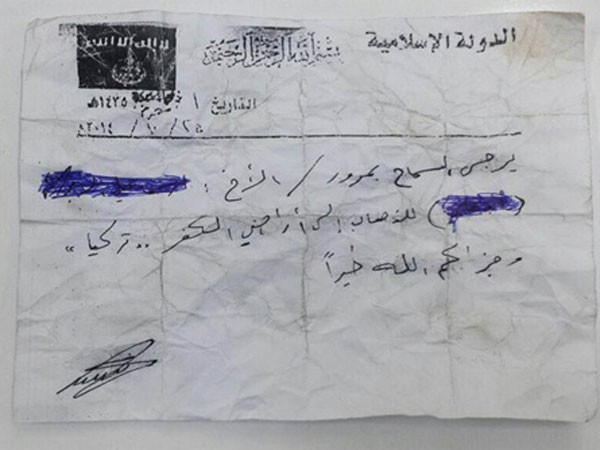 الدولة الإسلامية
بسم الله الرحمن الرحيم
لا إله إلا الله
التاريخ ١ محرم ١٤٣٥هـ
٢٥ / ١٠ / ٢٠١٤م
يرجى السماح بمرور / الأخ :
( ) للذهاب إلى أراضي الكفر .. تركيا ،،
وجزاكم الله خيراً